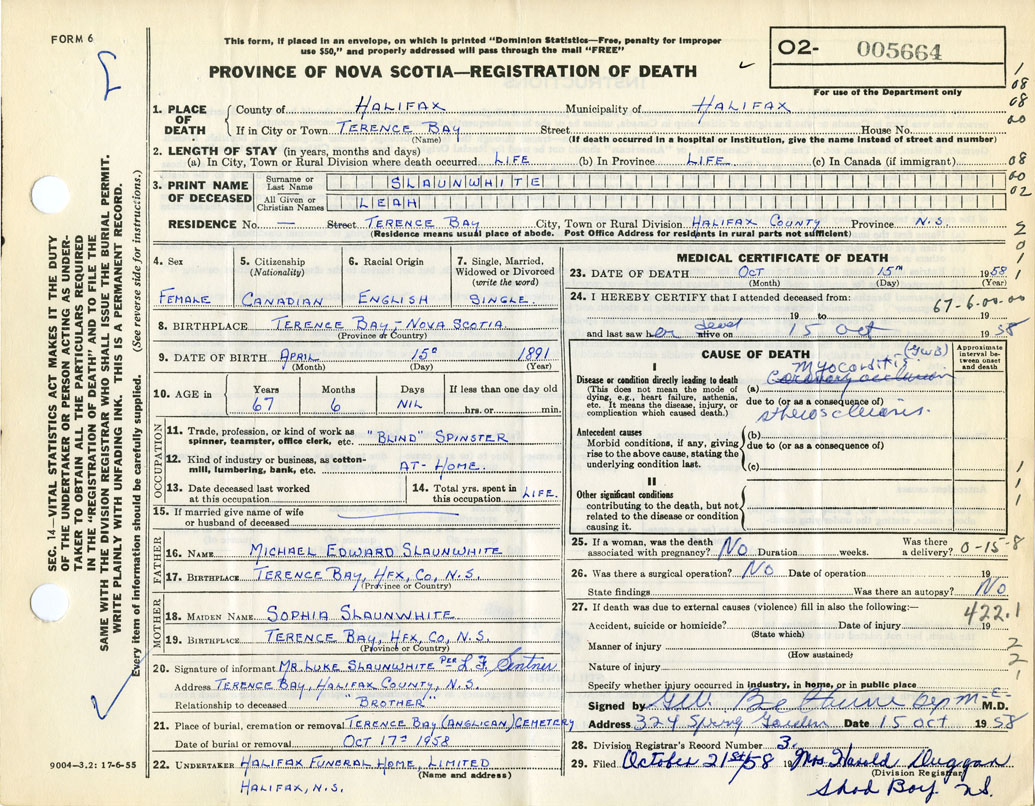 FORM 6
This form, if placed in an envelope, on which is printed "Dominion Statistics—Free, penalty for improper
use $50," and properly addressed will pass through the mail "FREE"
PROVINCE OF NOVA SCOTIA—REGISTRATION OF DEATH
O2- 005664
For use of the Department only
1. PLACE OF DEATH
County of HALIFAX Municipality of HALIFAX
If in City or Town TERENCE BAY Street House No.
(Name) (If death occurred in a hospital or institution, give the name instead of street and number)
2. LENGTH OF STAY (in years, months and days)
(a) In City, Town or Rural Division where death occurred LIFE (b) In Province LIFE (c) In Canada (if immigrant)
3. PRINT NAME OF DECEASED
Surname or Last Name SLAUNWHITE
All Given or Christian Names LEAH
RESIDENCE No. — Street TERENCE BAY City, Town or Rural Division HALIFAX COUNTY Province N.S.
(Residence means usual place of abode. Post Office Address for residents in rural parts not sufficient)
4. Sex
FEMALE
5. Citizenship
(Nationality)
CANADIAN
6. Racial Origin
ENGLISH
7. Single, Married,
Widowed or Divorced
(write the word)
SINGLE.
8. BIRTHPLACE TERENCE BAY, - NOVA SCOTIA
(Province or Country)
9. DATE OF BIRTH APRIL 15 1891
(Month) (Day) (Year)
10. AGE in
Years Months Days If less than one day old
67 6 NIL hrs. or min.
OCCUPATION
11. Trade, profession, or kind of work as
spinner, teamster, office clerk, etc. "BLIND" SPINSTER
12. Kind of industry or business, as cotton-
mill, lumbering, bank, etc. AT-HOME.
13. Date deceased last worked
at this occupation
14. Total yrs. spent in
this occupation LIFE.
15. If married give name of wife
or husband of deceased
FATHER
16. NAME MICHAEL EDWARD SLAUNWHITE
17. BIRTHPLACE TERENCE BAY, HFX, CO, N.S.
(Province or Country)
MOTHER
18. MAIDEN NAME SOPHIA SLAUNWHITE
19. BIRTHPLACE TERENCE BAY, HFX, CO, N.S.
(Province or Country)
20. Signature of informant MR. LUKE SLAUNWHITE PER L F
Address TERENCE BAY, HALIFAX COUNTY, N.S.
Relationship to deceased "BROTHER"
21. Place of burial, cremation or removal TERENCE BAY (ANGLICAN) CEMETERY
Date of burial or removal OCT 17TH 1958
22. UNDERTAKER HALIFAX FUNERAL HOME LIMITED
(Name and address)
HALIFAX, N.S.
9004—3.2: 17-6-55
MEDICAL CERTIFICATE OF DEATH
23. DATE OF DEATH OCT 15TH 1958
(Month) (Day) (Year)
24. I HEREBY CERTIFY that I attended deceased from:
67-6-00-00
19 to 19
and last saw her dead alive on 15 Oct 1958
CAUSE OF DEATH
Approximate interval between onset and death
I
Disease or condition directly leading to death
(This does not mean the mode of
dying, e.g., heart failure, asthenia,
etc. It means the disease, injury, or
complication which caused death.)
(GWB)
Myocarditis
(a) Coronary occlusion
due to (or as a consequence of)
Antecedent causes
Morbid conditions, if any, giving
rise to the above cause, stating the
underlying condition last.
(b)
due to (or as a consequence of)
(c)
II
Other significant conditions
contributing to the death, but not
related to the disease or condition
causing it.
25. If a woman, was the death
associated with pregnancy? No Duration weeks. Was there
a delivery? 0-15-8
26. Was there a surgical operation? No Date of operation 19
State findings Was there an autopsy? No
27. If death was due to external causes (violence) fill in also the following:—
422.1
Accident, suicide or homicide? Date of injury 19
(State which)
Manner of injury
(How sustained)
Nature of injury
Specify whether injury occurred in industry, in home, or in public place
Signed by GW. Bethune M-E- M.D.
Address 324 Spring Garden Date 15 Oct 1958
28. Division Registrar's Record Number 3.
29. Filed October 21st/58 19 Mrs Harold Duggan
(Division Registrar)
Shad Bay NS.
SEC. 14—VITAL STATISTICS ACT MAKES IT THE DUTY
OF THE UNDERTAKER OR PERSON ACTING AS UNDER-
TAKER TO OBTAIN ALL THE PARTICULARS REQUIRED
IN THE "REGISTRATION OF DEATH" AND TO FILE THE
SAME WITH THE DIVISION REGISTRAR WHO SHALL ISSUE THE BURIAL PERMIT.
WRITE PLAINLY WITH UNFADING INK. THIS IS A PERMANENT RECORD.
Every item of information should be carefully supplied. (See reverse side for instructions.)
1
08
08
00
08
00
02
5
0
1
1
1
1
1
2
2
1